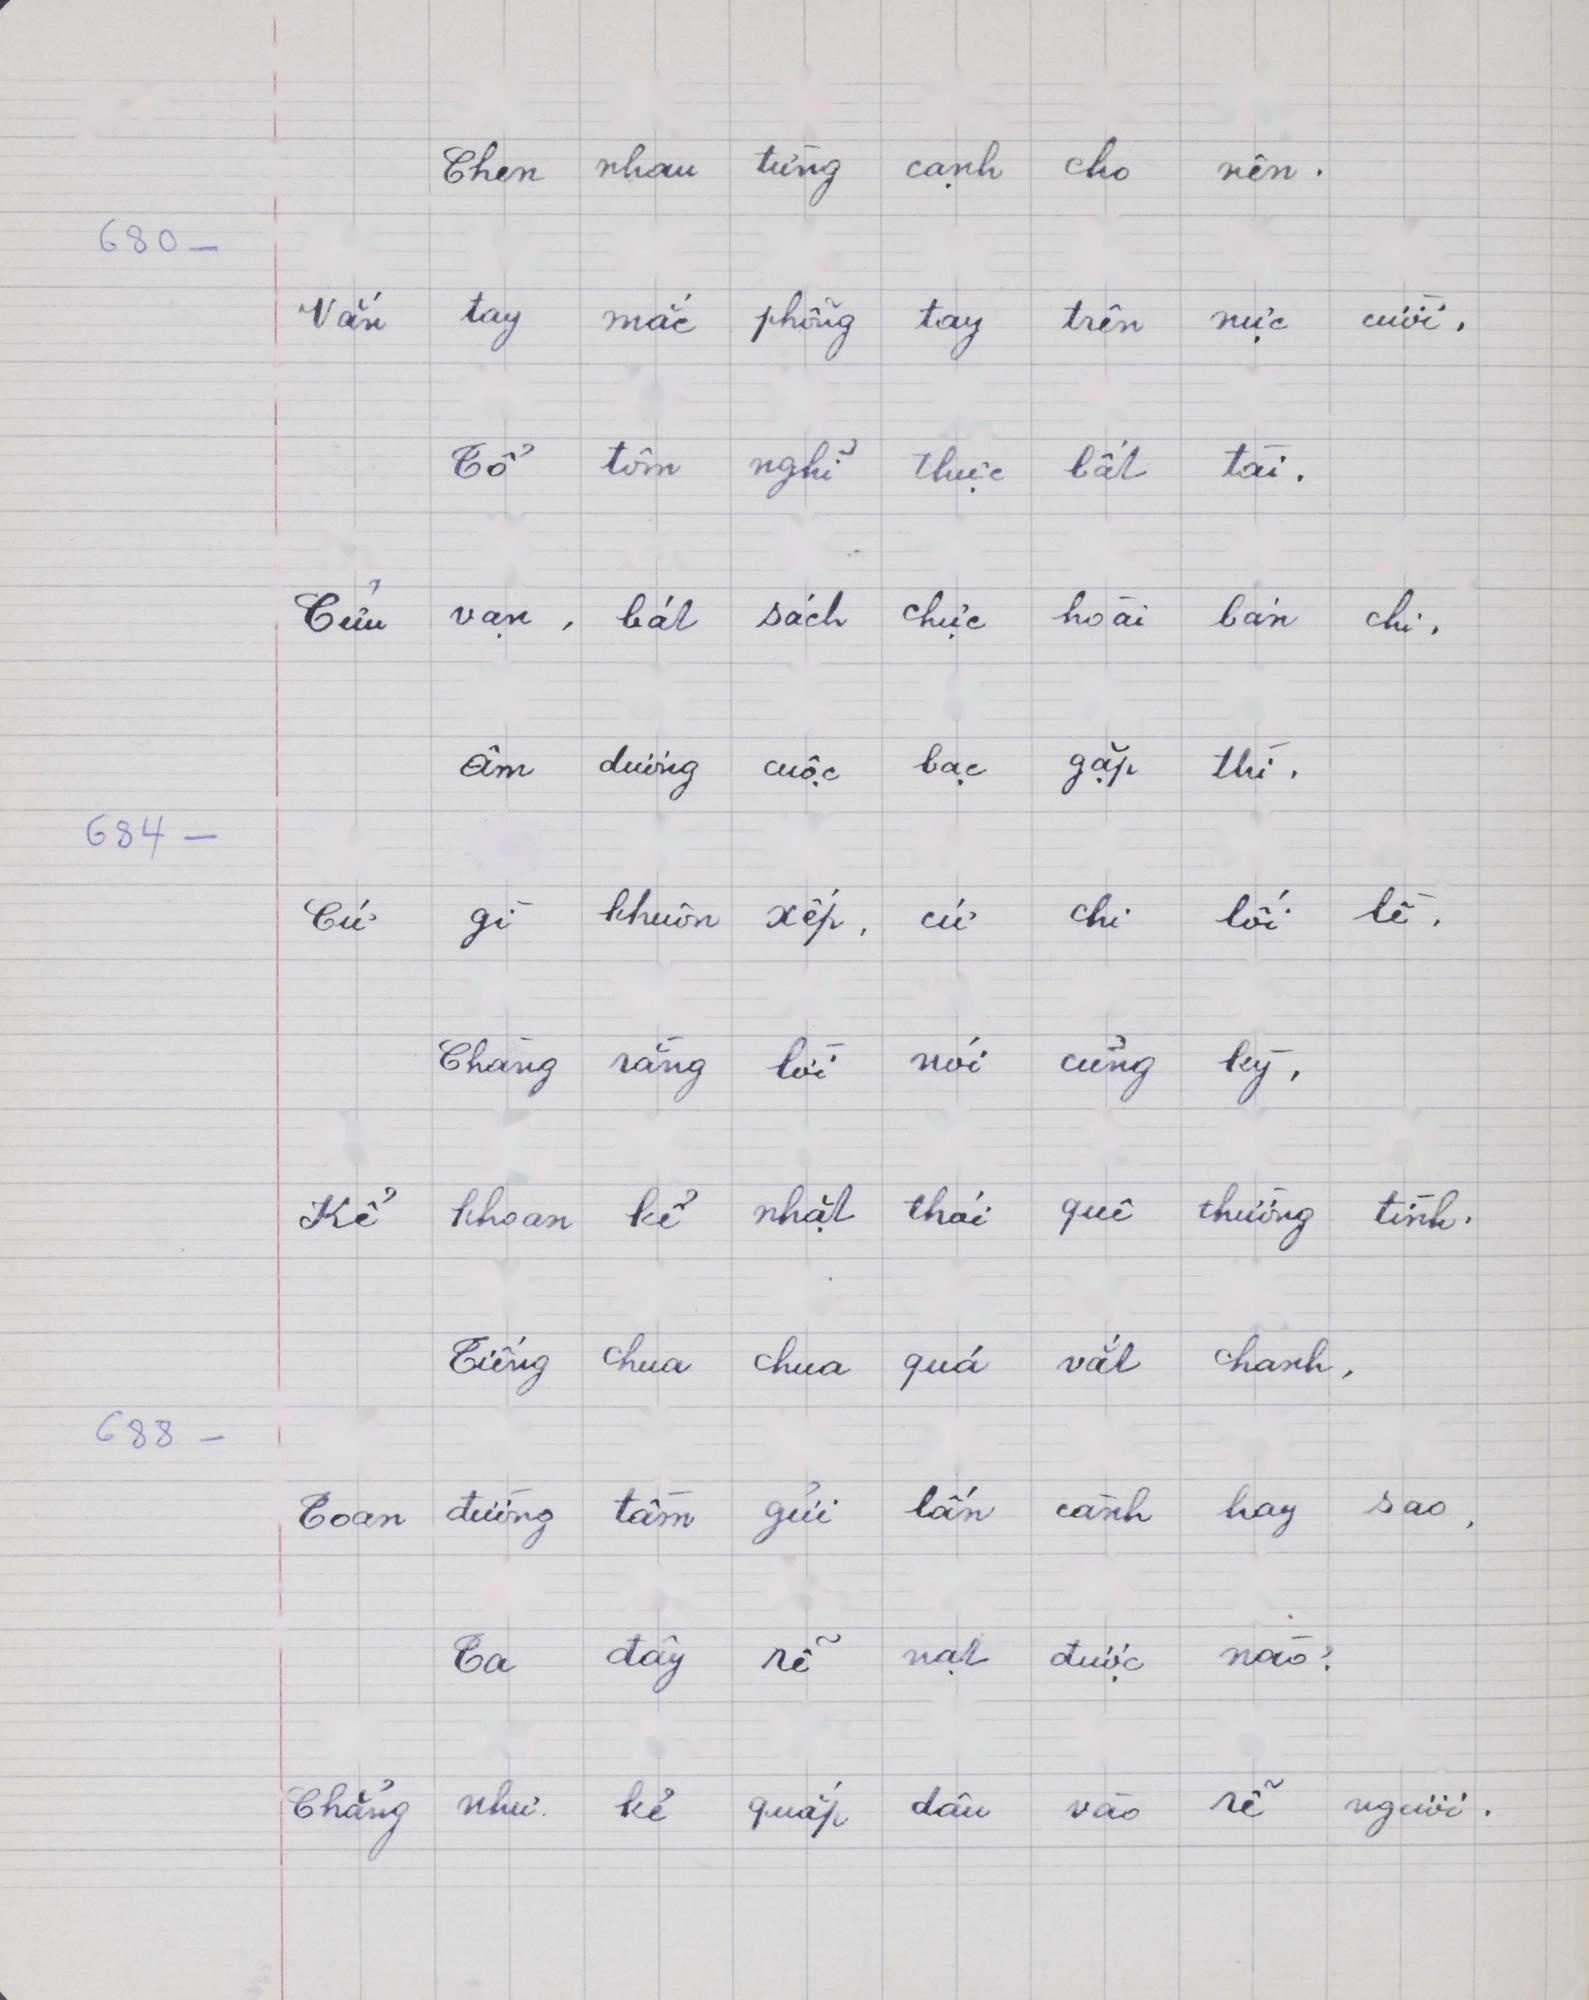 Chen nhau từng cạnh cho nên.
680 –
Vắn tay mắc phỗng tay trên nực cười,
Tổ tôm nghĩ thực bất tài.
Cửu vạn, bát sách chực hoài bán chi,
Âm dương cuộc bạc gặp thì.
684 –
Cứ gì khuôn xếp, cứ chi lối lề,
Chàng rằng lời nói cũng kỳ,
Kể khoan kể nhặt thói quê thường tình.
Tiếng chua chua quá vắt chanh,
688 –
Toan đường tầm gửi lấn cành hay sao,
Ta đây rễ nạt được nào?
Chẳng như kẻ quắp dâu vào rễ người.